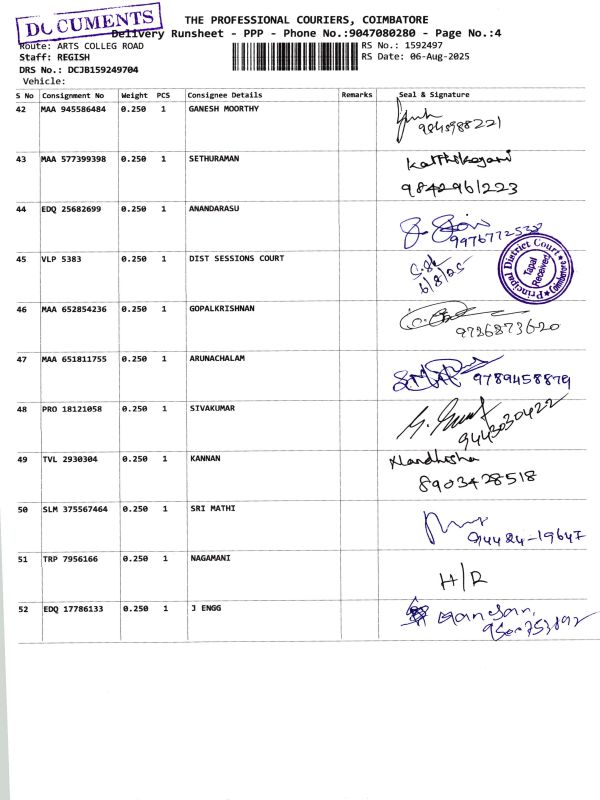 DOCUMENTS
THE PROFESSIONAL COURIERS, COIMBATORE
Delivery Runsheet - PPP - Phone No.:9047080280 - Page No.:4
Route: ARTS COLLEG ROAD
RS No.: 1592497
Staff: REGISH
RS Date: 06-Aug-2025
DRS No.: DCJB159249704
Vehicle:
S No Consignment No Weight PCS Consignee Details Remarks Seal & Signature
42 MAA 945586484 0.250 1 GANESH MOORTHY
9843988221
43 MAA 577399398 0.250 1 SETHURAMAN
9842961223
44 EDQ 25682699 0.250 1 ANANDARASU
9976772533
45 VLP 5383 0.250 1 DIST SESSIONS COURT
6/8/25
Principal District Court
Tapal
Received
Coimbatore
46 MAA 652854236 0.250 1 GOPALKRISHNAN
9786873620
47 MAA 651811755 0.250 1 ARUNACHALAM
9789458879
48 PRO 18121058 0.250 1 SIVAKUMAR
9443030422
49 TVL 2930304 0.250 1 KANNAN
Nandhisha
8903428518
50 SLM 375567464 0.250 1 SRI MATHI
94424-19647
51 TRP 7956166 0.250 1 NAGAMANI
H/R
52 EDQ 17786133 0.250 1 J ENGG